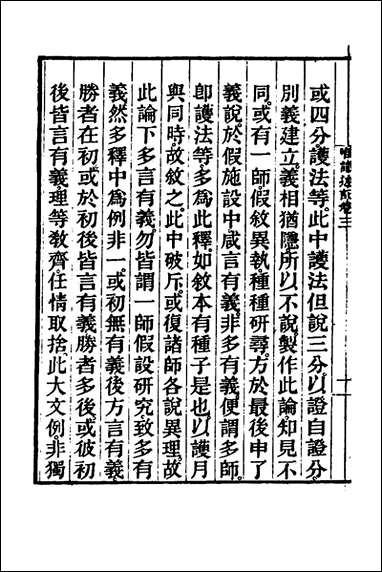 或四分。護法等。此中護法但說三分。以證自證分。
別義建立。義相猶隱。所以不說。製作此論。知見不
同。或有一師。假敘異執。種種研尋。方於最後申了
義說。於假施設中咸言有義。非多有義。便謂多師。
即護法等多為此釋。如敘本有種子是也。以護月
與同時。故敘之。此中破斥。或復諸師各說異理。故
此論下多言有義。勿皆謂一師假設研究致多有
義。然多釋中為例非一。或初無有義。後方言有義。
勝者在初。或於初後皆言有義。勝者多後。或彼初
後皆言有義。理等教齊。任情取捨。此大文例。非獨